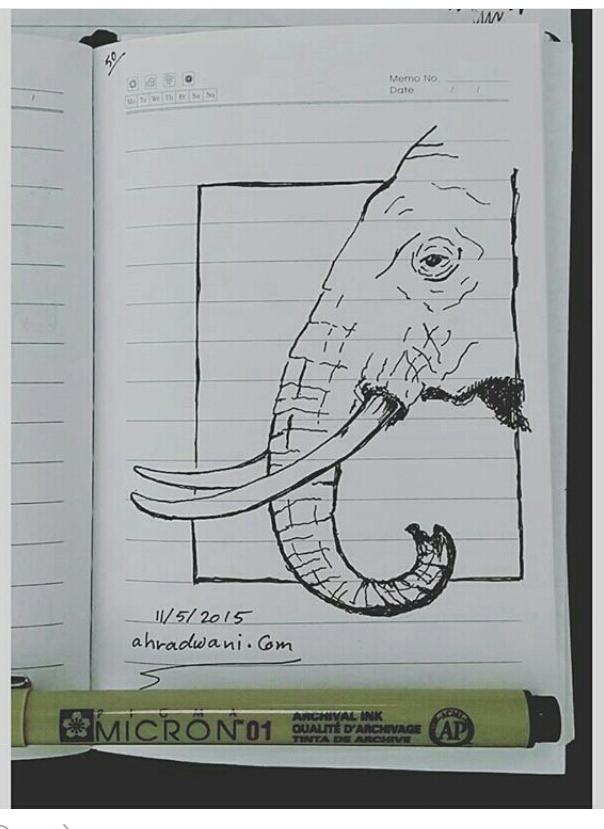 50
Memo No.
Mo Tu We Th Fr Sa Su
Date / /
11/5/2015
ahradwani.Com
PIGMA
MICRON™01
ARCHIVAL INK
QUALITÉ D'ARCHIVAGE
TINTA DE ARCHIVE
ACMI
AP